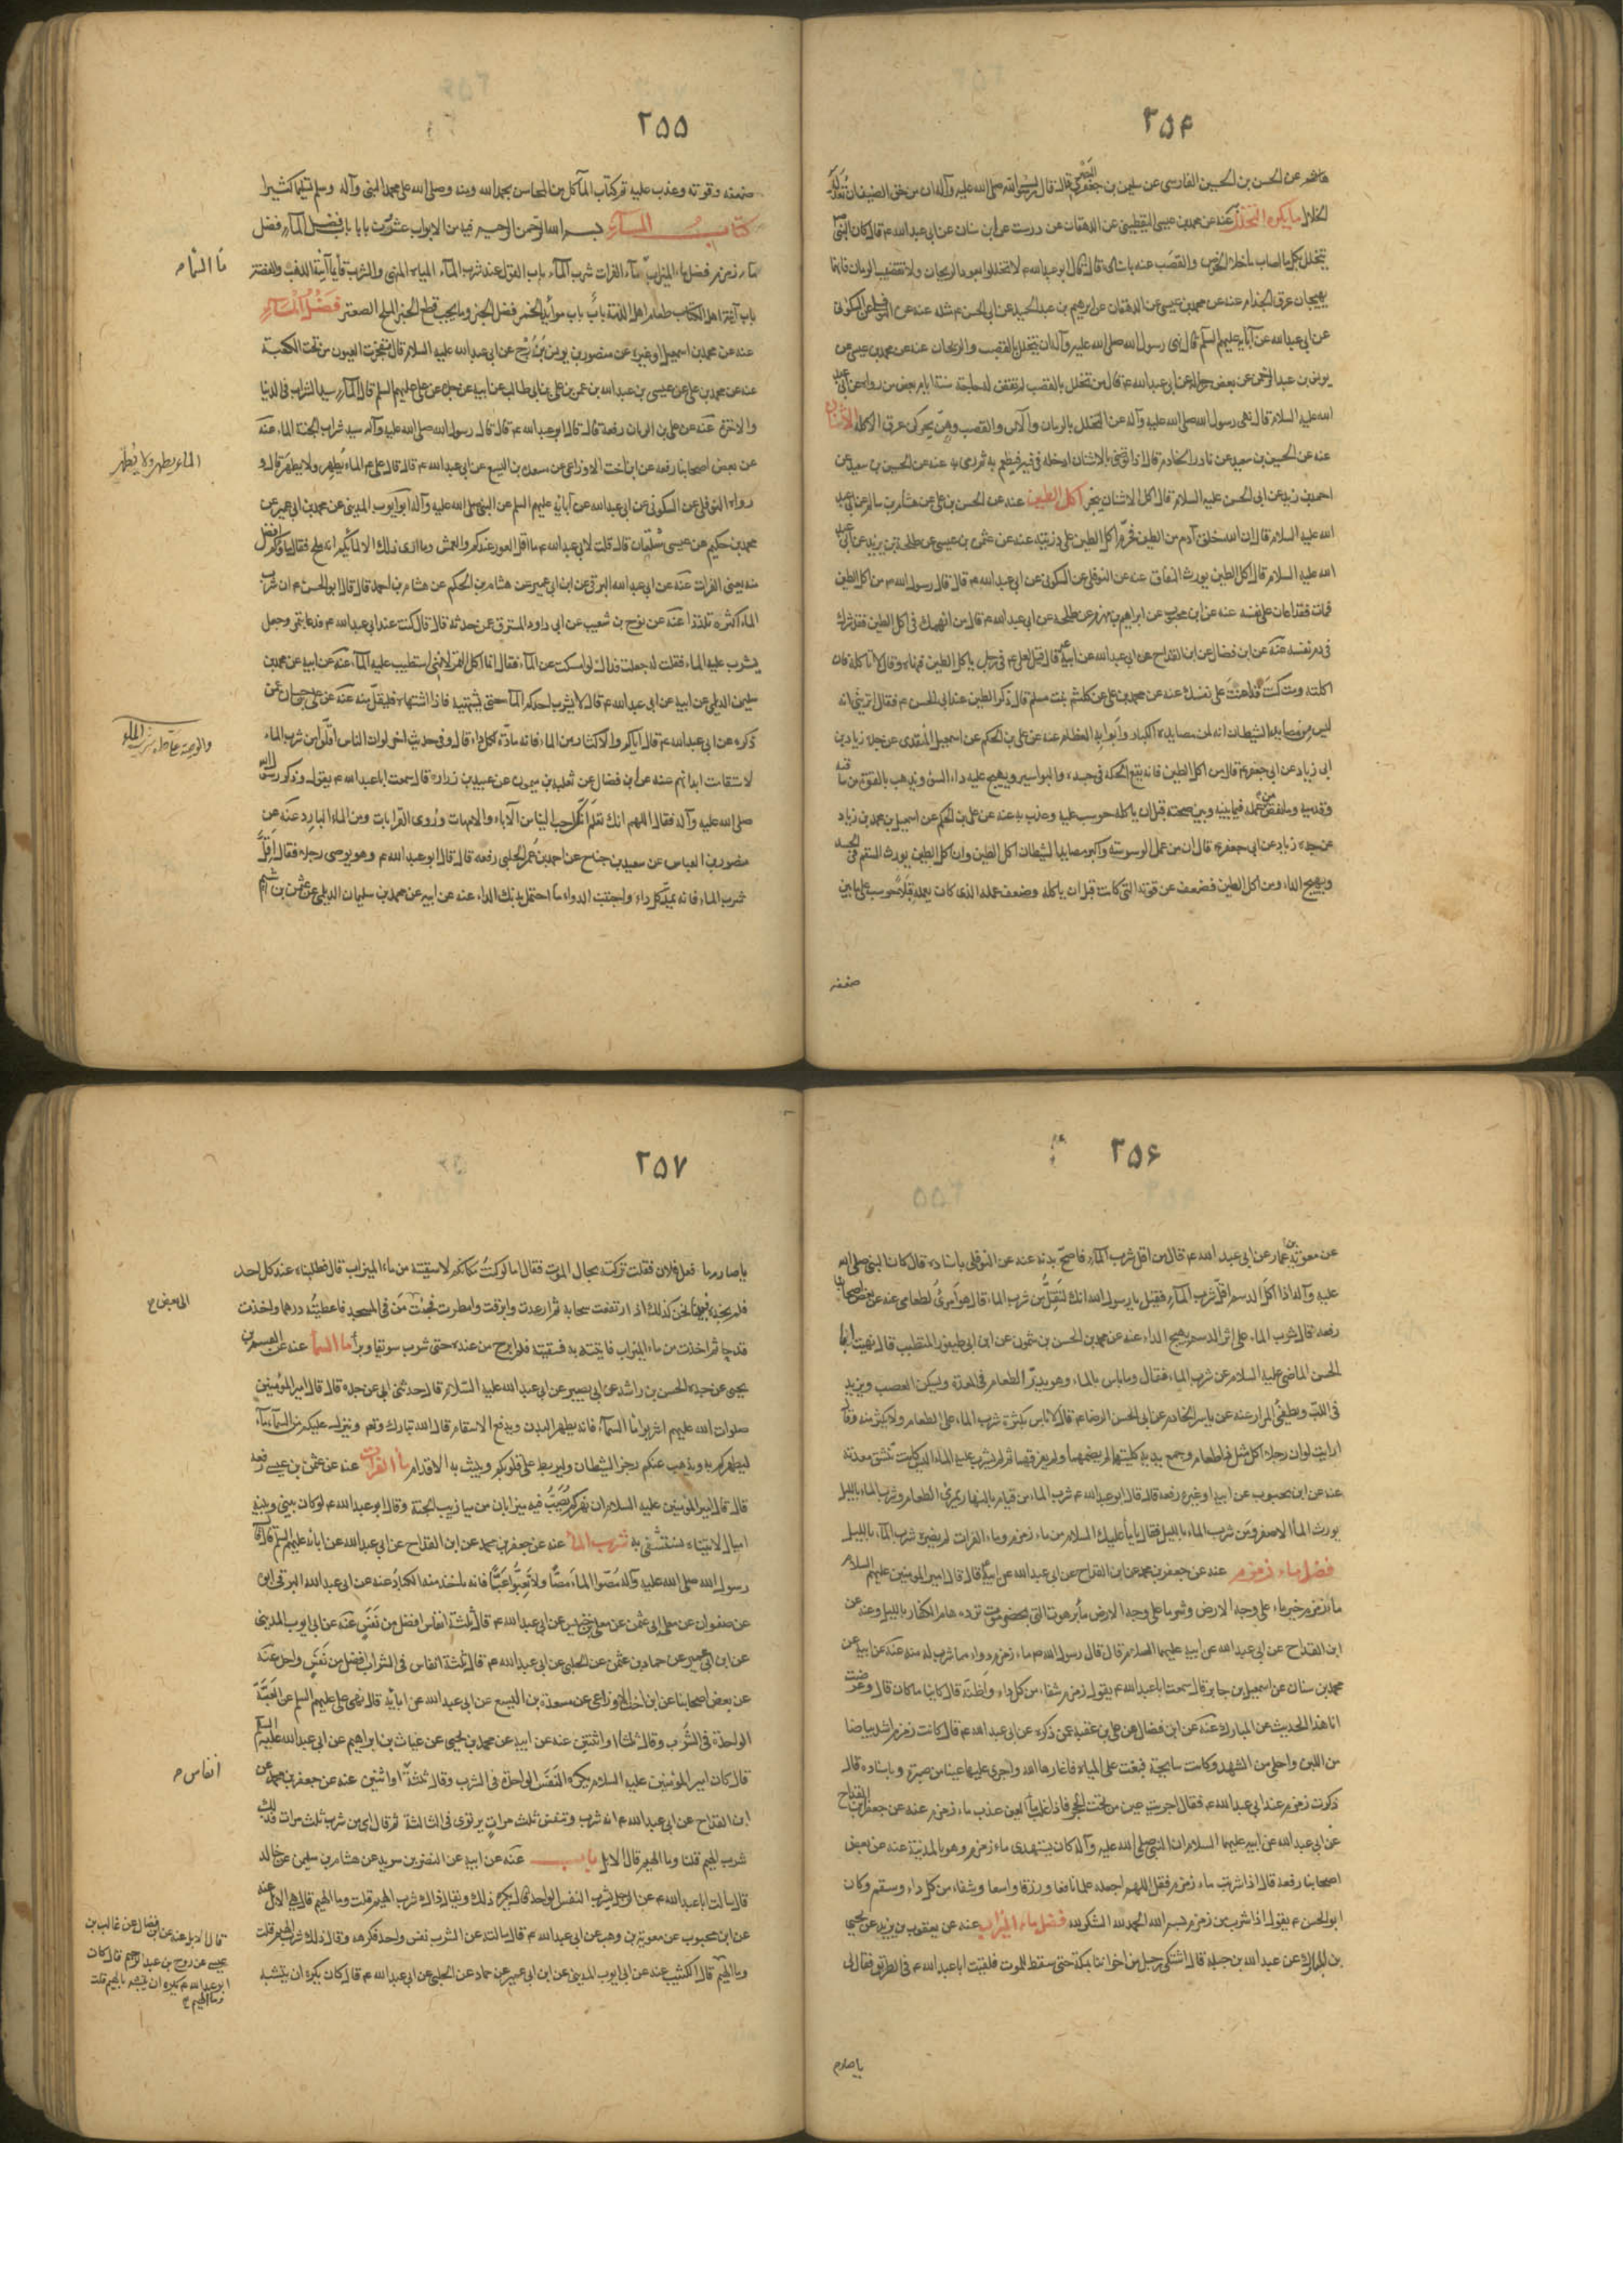 ٢٥٤
هاشم عن الحسن بن الحسين الفارسى عن سليمن بن جعفر البصرى قال قال رسول الله صلى الله عليه وآله ان من حق الضيف ان تعد له
الخلال ما يكره التخلل به عنه عن محمد بن عيسى اليقطينى عن الدهقان عن درست عن ابن سنان عن ابى عبد الله ع قال كان النبى
يتخلل بكل ما اصاب ما خلا الخوص والقصب عنه باسناده قال قال ابو عبد الله ع لا تخللوا بعود الريحان ولا بقضيب الرمان فانهما
يهيجان عرق الجذام عنه عن محمد بن عيسى عن الدهقان عن ابرهيم بن عبد الحميد عن ابى الحسن ع مثله عنه عن النوفلى عن السكونى
عن ابى عبد الله عن آبائه عليهم السلم قال نهى رسول الله صلى الله عليه وآله ان يتخلل بالقصب والريحان عنه عن محمد بن عيسى عن
يونس بن عبد الرحمن عن بعض رجاله عن ابى عبد الله ع قال من تخلل بالقصب لم تقض له حاجة ستة ايام بعض من رواه عن ابى عبد
الله عليه السلام قال نهى رسول الله صلى الله عليه وآله عن التخلل بالرمان والآس والقصب وهن يحركن عرق الاكلة الاشنان
عنه عن الحسين بن سعيد عن نادر الخادم قال اذا توضى بالاشنان ادخله فى فيه فيطعم به ثم رمى به عنه عن الحسين بن سعيد عن
احمد بن زيد عن ابى الحسن عليه السلام قال اكل الاشنان يبخر اكل الطين عنه عن الحسن بن على عن هشام بن سالم عن ابى عبد
الله عليه السلام قال ان الله خلق آدم من الطين فحرم اكل الطين على ذريته عنه عن عثمن بن عيسى عن طلحة بن يزيد عن ابى عبد
الله عليه السلام قال اكل الطين يورث النفاق عنه عن النوفلى عن السكونى عن ابى عبد الله ع قال قال رسول الله ص من اكل الطين
فمات فقد اعان على نفسه عنه عن ابن محبوب عن ابراهيم بن مهزم عن طلحة عن ابى عبد الله ع قال من انهمك فى اكل الطين فقد شرك
فى دم نفسه عنه عن ابن فضال عن ابن القداح عن ابى عبد الله عن ابيه ع قال قيل لعلى ع فى رجل ياكل الطين فنهاه وقال لا تاكله فان
اكلته ومت كنت قد اعنت على نفسك عنه عن محمد بن على عن كلثم بنت مسلم قال ذكر الطين عند ابى الحسن ع فقال ترين انه
ليس من مصايد الشيطان انه لمن مصايده الكبار وابوابه العظام عنه عن على بن الحكم عن اسمعيل المنقرى عن جده زياد بن
ابى زياد عن ابى جعفر ع قال من اكل الطين فانه تقع الحكة فى جسده والبواسير ويهيج عليه داء السوء ويذهب بالقوة من ساقيه
وقدميه وما نقص من عمله فيما بينه وبين صحته قبل ان ياكله حوسب عليه وعذب به عنه عن على بن الحكم عن اسمعيل بن محمد بن زياد
عن جده زياد عن ابى جعفر ع قال ان من عمل الوسوسة واكبر مصايد الشيطان اكل الطين وان اكل الطين يورث السقم فى الجسد
ويهيج الداء ومن اكل الطين فضعف عن قوته التى كانت قبل ان ياكله وضعف عمله الذى كان يعمله قبل حوسب على ما بين
ضعفه
٢٥٥
ضعفه وقوته وعذب عليه تم كتاب المآكل من المحاسن بحمد الله ومنه وصلى الله على محمد النبى وآله وسلم تسليما كثيرا
كتاب الماء بسم الله الرحمن الرحيم فيه من الابواب عشرون بابا باب فضل الماء فضل
ماء زمزم فضل ماء الميزاب ماء الفرات شرب الماء باب القول عند شرب الماء المياه المنهى والشرب قائما آنية الذهب والفضة
باب آنية اهل الكتاب طعام اهل الذمة باب باب موائد الخمر فضل الخبز وما يجب قطع الخبز الملح الصعتر فضل الماء
عنه عن محمد بن اسمعيل او غيره عن منصور بن يونس بن بزرج عن ابى عبد الله عليه السلام قال تفجرت العيون من تحت الكعبة
عنه عن محمد بن على عن عيسى بن عبد الله بن عمر بن على بن ابى طالب عن ابيه عن جده عن على عليهم السلم قال الماء سيد الشراب فى الدنيا
والاخرة عنه عن على بن الريان رفعه قال قال ابو عبد الله ع قال قال رسول الله صلى الله عليه وآله سيد شراب الجنة الماء عنه
عن بعض اصحابنا رفعه عن ابن اخت الاوزاعى عن مسعدة بن اليسع عن ابى عبد الله ع قال قال على ع الماء يطهر ولا يطهر قال و
رواه النوفلى عن السكونى عن ابى عبد الله عن آبائه عليهم السلم عن النبى صلى الله عليه وآله ابو ايوب المدينى عن محمد بن ابى عمير عن
محمد بن حكيم عن عيسى شلقان قال قلت لابى عبد الله ع ما اقل العور عندكم والعمش وما ارى ذلك الا لمائكم انه ملح فقال ماؤكم افضل
منه يعنى الفرات عنه عن ابى عبد الله البرقى عن ابن ابى عمير عن هشام بن الحكم عن هشام بن احمد قال قال ابو الحسن ع ان شرب
الماء اكثره تلذذا عنه عن نوح بن شعيب عن ابى داود المسترق عن حدثه قال قال كنت عند ابى عبد الله ع فدعا بتمر وجعل
يشرب عليه الماء فقلت له جعلت فداك لو امسكت عن الماء فقال انما اكل التمر لانى استطيب عليه الماء عنه عن ابيه عن محمد بن
سليمن الديلمى عن ابيه عن ابى عبد الله ع قال لا يشرب احدكم الماء حتى يشتهيه فاذا اشتهاه فليقل منه عنه عن على بن حسان عن
ذكره عن ابى عبد الله ع قال اياكم والاكثار من الماء فانه مادة كل داء قال وفى حديث اخر لو ان الناس اقلوا من شرب الماء
لاستقامت ابدانهم عنه عن ابن فضال عن ثعلبة بن ميمون عن عبيد بن زرارة قال سمعت ابا عبد الله ع يقول وذكر رسول الله
صلى الله عليه وآله فقال اللهم انك تعلم انه احب الينا من الآباء والامهات وذوى القرابات ومن الماء البارد عنه عن
منصور بن العباس عن سعيد بن جناح عن احمد بن عمر الحلبى رفعه قال قال ابو عبد الله ع وهو يوصى رجلا فقال اقل
شرب الماء فانه يمد كل داء واجتنب الدواء ما احتمل بدنك الداء عنه عن ابيه عن محمد بن سليمان الديلمى عن عثمن بن اشيم
ماء السماء م
الماء يطهر ولا يطهر
٢٥٦
عن معوية بن عمار عن ابى عبد الله ع قال من اقل شرب الماء فاصح بدنه عنه عن النوفلى باسناده قال كان النبى صلى الله
عليه وآله اذا اكل الدسم اقل شرب الماء فقيل يا رسول الله انك لتقل من شرب الماء قال هو امرى لطعامى عنه عن بعض اصحابنا
رفعه قال شرب الماء على اثر الدسم يهيج الداء عنه عن محمد بن الحسن بن شمون عن ابن ابى طيفور المتطبب قال نهيت ابا
الحسن الماضى عليه السلام عن شرب الماء فقال وما باس بالماء وهو يدير الطعام فى المعدة ويسكن الغضب ويزيد
فى اللب ويطفئ المرار عنه عن ياسر الخادم عن ابى الحسن الرضا ع قال لا باس بكثرة شرب الماء على الطعام ولا يكثر منه وقال
ارايت لو ان رجلا اكل مثل ذا طعاما وجمع يديه كلتيهما لم يضمهما ولم يفرقهما ثم لم يشرب عليه الماء اليس كانت تنشق معدته
عنه عن ابن محبوب عن ابيه او غيره رفعه قال قال ابو عبد الله ع شرب الماء من قيام بالنهار يمرئ الطعام وشرب الماء بالليل
يورث الماء الاصفر ومن شرب الماء بالليل فقال يا ماء عليك السلام من ماء زمزم وماء الفرات لم يضره شرب الماء بالليل
فضل ماء زمزم عنه عن جعفر بن محمد عن ابن القداح عن ابى عبد الله عن ابيه ع قال قال امير المومنين عليهم السلام
ماء زمزم خير ماء على وجه الارض وشر ماء على وجه الارض ماء برهوت التى بحضرموت ترده هام الكفار بالليل وعنه عن
ابن القداح عن ابى عبد الله عن ابيه عليهما السلام قال قال رسول الله ص ماء زمزم دواء مما شرب له منه عنه عن ابيه عن
محمد بن سنان عن اسمعيل بن جابر قال سمعت ابا عبد الله ع يقول زمزم شفاء من كل داء واظنه قال كائنا ما كان قال وعرضت
انا هذا الحديث عن المبارك عنه عن ابن فضال عن على بن عقبة عن ذكره عن ابى عبد الله ع قال كانت زمزم اشد بياضا
من اللبن واحلى من الشهد وكانت سائحة فبغت على المياه فاغارها الله واجرى عليها عينا من صبر وباسناده قال
ذكرت زمزم عند ابى عبد الله ع فقال اجريت عين من تحت الحجر فاذا غلب ماء العين عذب ماء زمزم عنه عن جعفر ابن القداح
عن ابى عبد الله عن ابيه عليهما السلام ان النبى صلى الله عليه وآله كان يستهدى ماء زمزم وهو بالمدينة عنه عن بعض
اصحابنا رفعه قال اذا شربت ماء زمزم فقل اللهم اجعله علما نافعا ورزقا واسعا وشفاء من كل داء وسقم وكان
ابو الحسن ع يقول اذا شرب من زمزم بسم الله الحمد لله الشكر لله فضل ماء الميزاب عنه عن يعقوب بن يزيد عن يحيى
بن المبارك عن عبد الله بن جبلة قال اشتكى رجل من اخواننا بمكة حتى سقط للموت فلقيت ابا عبد الله ع فى الطريق فقال لى
يا صارم
٢٥٧
يا صارم ما فعل فلان فقلت تركته بحال الموت فقال اما لو كنت مكانكم لاسقيته من ماء الميزاب قال فطلبناه عند كل احد
فلم نجده فبينا نحن كذلك اذ ارتفعت سحابة ثم ارعدت وابرقت وامطرت فجئت من فى المسجد فاعطيته درهما واخذت
قدحا ثم اخذت من ماء الميزاب فاتيته به فسقيته فلم ابرح من عنده حتى شرب سويقا وبرأ ماء السماء عنه عن القسم بن
يحيى عن جده الحسن بن راشد عن ابى بصير عن ابى عبد الله عليه السلام قال حدثنى ابى عن جده قال قال امير المؤمنين
صلوات الله عليهم اشربوا ماء السماء فانه يطهر البدن ويدفع الاسقام قال الله تبارك وتعم وينزل عليكم من السماء ماء
ليطهركم به ويذهب عنكم رجز الشيطان وليربط على قلوبكم ويثبت به الاقدام ماء الفرات عنه عن عثمن بن عيسى رفعه
قال قال امير المومنين عليه السلام ان نهركم يصب فيه ميزابان من ميازيب الجنة وقال ابو عبد الله ع لو كان بينى وبينه
اميال لاتيناه نستشفى به شرب الماء عنه عن جعفر بن محمد عن ابن القداح عن ابى عبد الله عن ابائه عليهم السلم قال قال
رسول الله صلى الله عليه وآله مصوا الماء مصا ولا تعبوا عبا فانه ياخذ منه الكباد عنه عن ابى عبد الله البرقى ابن
عن صفوان عن معلى ابى عثمن عن معلى بن خنيس عن ابى عبد الله ع قال ثلثة انفاس افضل من نفس عنه عن ابى ايوب المدينى
عن ابن ابى عمير عن حماد بن عثمن عن الحلبى عن ابى عبد الله ع قال ثلثة انفاس فى الشراب افضل من نفس واحد عنه
عن بعض اصحابنا عن ابن اخت الاوزاعى عن مسعدة بن اليسع عن ابى عبد الله عن ابائه قال نهى على عليهم السلم عن العبة
الواحدة فى الشرب وقال ثلثا او اثنتين عنه عن ابيه عن محمد بن يحيى عن غياث بن ابراهيم عن ابى عبد الله عليه السلم
قال كان امير المومنين عليه السلام يكره النفس الواحد فى الشرب وقال ثلثة او اثنين عنه عن جعفر بن محمد عن
ابن القداح عن ابى عبد الله ع انه شرب وتنفس ثلث مرات يرتوى فى الثالثة ثم قال ابى من شرب ثلث مرات فذلك
شرب الهيم قلت وما الهيم قال الابل باب عنه عن ابيه عن النضر بن سويد عن هشام بن سليمن عن خالد
قال سالت ابا عبد الله ع عن الرجل يشرب النفس الواحد قال يكره ذلك ويقال ذاك شرب الهيم قلت وما الهيم قال هى الابل عنه
عن ابن محبوب عن معوية بن وهب عن ابى عبد الله ع قال سالته عن الشرب نفس واحد فكرهه وقال ذلك شرب الهيم قلت
وما الهيم قال الكثيب عنه عن ابى ايوب المدينى عن ابن ابى عمير عن حماد عن الحلبى عن ابى عبد الله ع قال كان يكره ان يتشبه
انفاس م
قال الابل عنه عن ابن فضال عن غالب بن
عيسى عن روح بن عبد الرحيم قال كان
ابو عبد الله ع يكره ان يتشبه بالهيم قلت
وما الهيم م